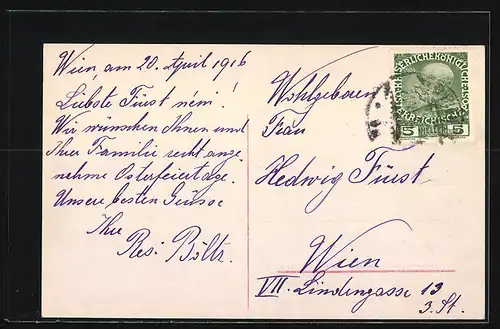 Wien, am 20. April 1916
Liebste Fürst néni!
Wir wünschen Ihnen und
Ihrer Familie recht ange-
nehme Osterfeiertage.
Unsere besten Grüsse
Ihre
Resi Böltz.
Wohlgeboren
Frau
Hedwig Fürst
Wien
VII. Lindengasse 13
3. St.
5 HELLER 5